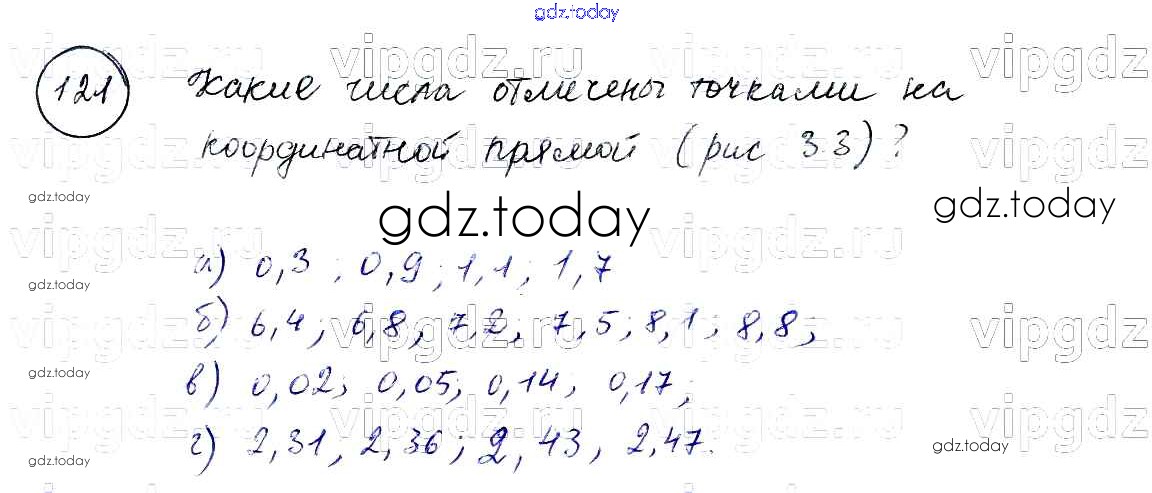 gdz.today
121 Какие числа отмечены точками на
координатной прямой (рис 3.3)?
gdz.today
gdz.today
gdz.today
а) 0,3; 0,9; 1,1; 1,7
gdz.today
б) 6,4; 6,8; 7,2; 7,5; 8,1; 8,8;
gdz.today
в) 0,02; 0,05; 0,14; 0,17;
г) 2,31, 2,36; 2,43, 2,47.
gdz.today
gdz.today
vipgdz.ru
vipgdz.ru
vipgdz
vipgdz.ru
vipgdz.ru
vipgdz.ru
vipgdz.ru
vipgdz
vipgdz.ru
vipgdz.ru
vipgdz